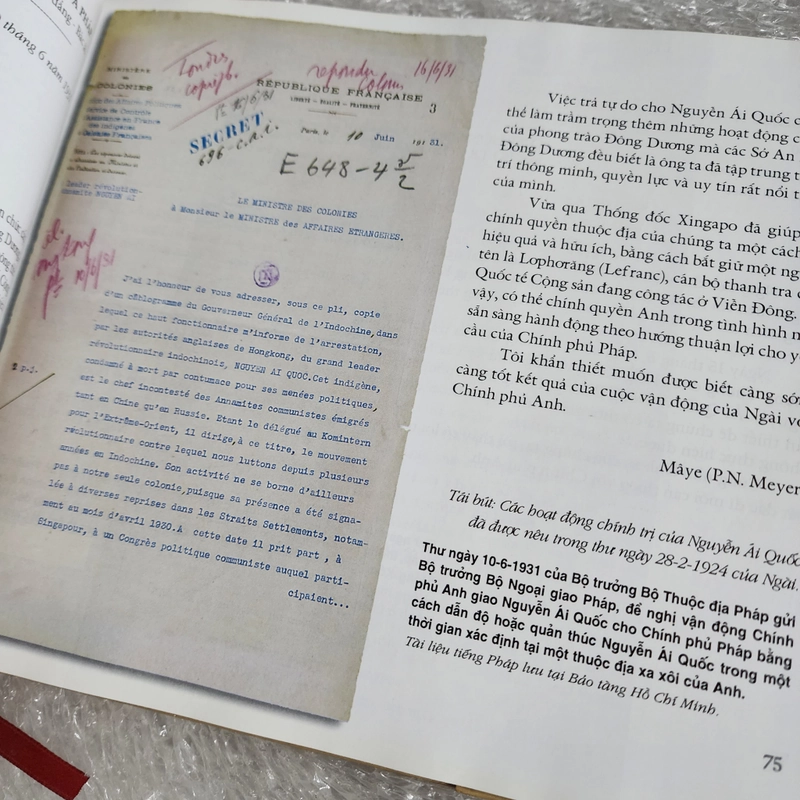 tháng 6 năm
MINISTÈRE
DES
COLONIES
Service de Contrôle
des indigènes
RÉPUBLIQUE FRANÇAISE
LIBERTÉ – ÉGALITÉ – FRATERNITÉ
3
répondu
16/6/31
SECRET
696 - c.a.i.
Paris, le 10 Juin 1931.
E 648-4 5/2
Leader révolution-
LE MINISTRE DES COLONIES
à Monsieur le MINISTRE des AFFAIRES ETRANGERES.
J'ai l'honneur de vous adresser, sous ce pli, copie
d'un câblogramme du Gouverneur Général de l'Indochine,dans
lequel ce haut fonctionnaire m'informe de l'arrestation,
par les autorités anglaises de Hongkong, du grand leader
révolutionnaire indochinois, NGUYEN AI QUOC.Cet indigène,
condamné à mort par contumace pour ses menées politiques,
est le chef incontesté des Annamites communistes émigrés
tant en Chine qu'en Russie. Etant le délégué au Komintern
pour l'Extrême-Orient, il dirige,à ce titre, le mouvement
révolutionnaire contre lequel nous luttons depuis plusieurs
années en Indochine. Son activité ne se borne d'ailleurs
pas à notre seule colonie,puisque sa présence a été signa-
lée à diverses reprises dans les Straits Settlements, notam-
ment au mois d'avril 1930.A cette date il prit part , à
Singapour, à un Congrès politique communiste auquel parti-
cipaient...
Việc trả tự do cho Nguyễn Ái Quốc c
thể làm trầm trọng thêm những hoạt động c
của phong trào Đông Dương mà các Sở An
Đông Dương đều biết là ông ta đã tập trung t
trí thông minh, quyền lực và uy tín rất nổi t
của mình.
Vừa qua Thống đốc Xingapo đã giúp
chính quyền thuộc địa của chúng ta một cách
hiệu quả và hữu ích, bằng cách bắt giữ một ng
tên là Lophơrăng (Lefranc), cán bộ thanh tra
Quốc tế Cộng sản đang công tác ở Viễn Đông.
vậy, có thể chính quyền Anh trong tình hình n
sẵn sàng hành động theo hướng thuận lợi cho y
cầu của Chính phủ Pháp.
Tôi khẩn thiết muốn được biết càng sớ
càng tốt kết quả của cuộc vận động của Ngài v
Chính phủ Anh.
Mâye (P.N. Meyer
Tái bút: Các hoạt động chính trị của Nguyễn Ái Quố
đã được nêu trong thư ngày 28-2-1924 của Ngài.
Thư ngày 10-6-1931 của Bộ trưởng Bộ Thuộc địa Pháp gửi
Bộ trưởng Bộ Ngoại giao Pháp, đề nghị vận động Chính
phủ Anh giao Nguyễn Ái Quốc cho Chính phủ Pháp bằng
cách dẫn độ hoặc quản thúc Nguyễn Ái Quốc trong một
thời gian xác định tại một thuộc địa xa xôi của Anh.
Tài liệu tiếng Pháp lưu tại Bảo tàng Hồ Chí Minh.
75